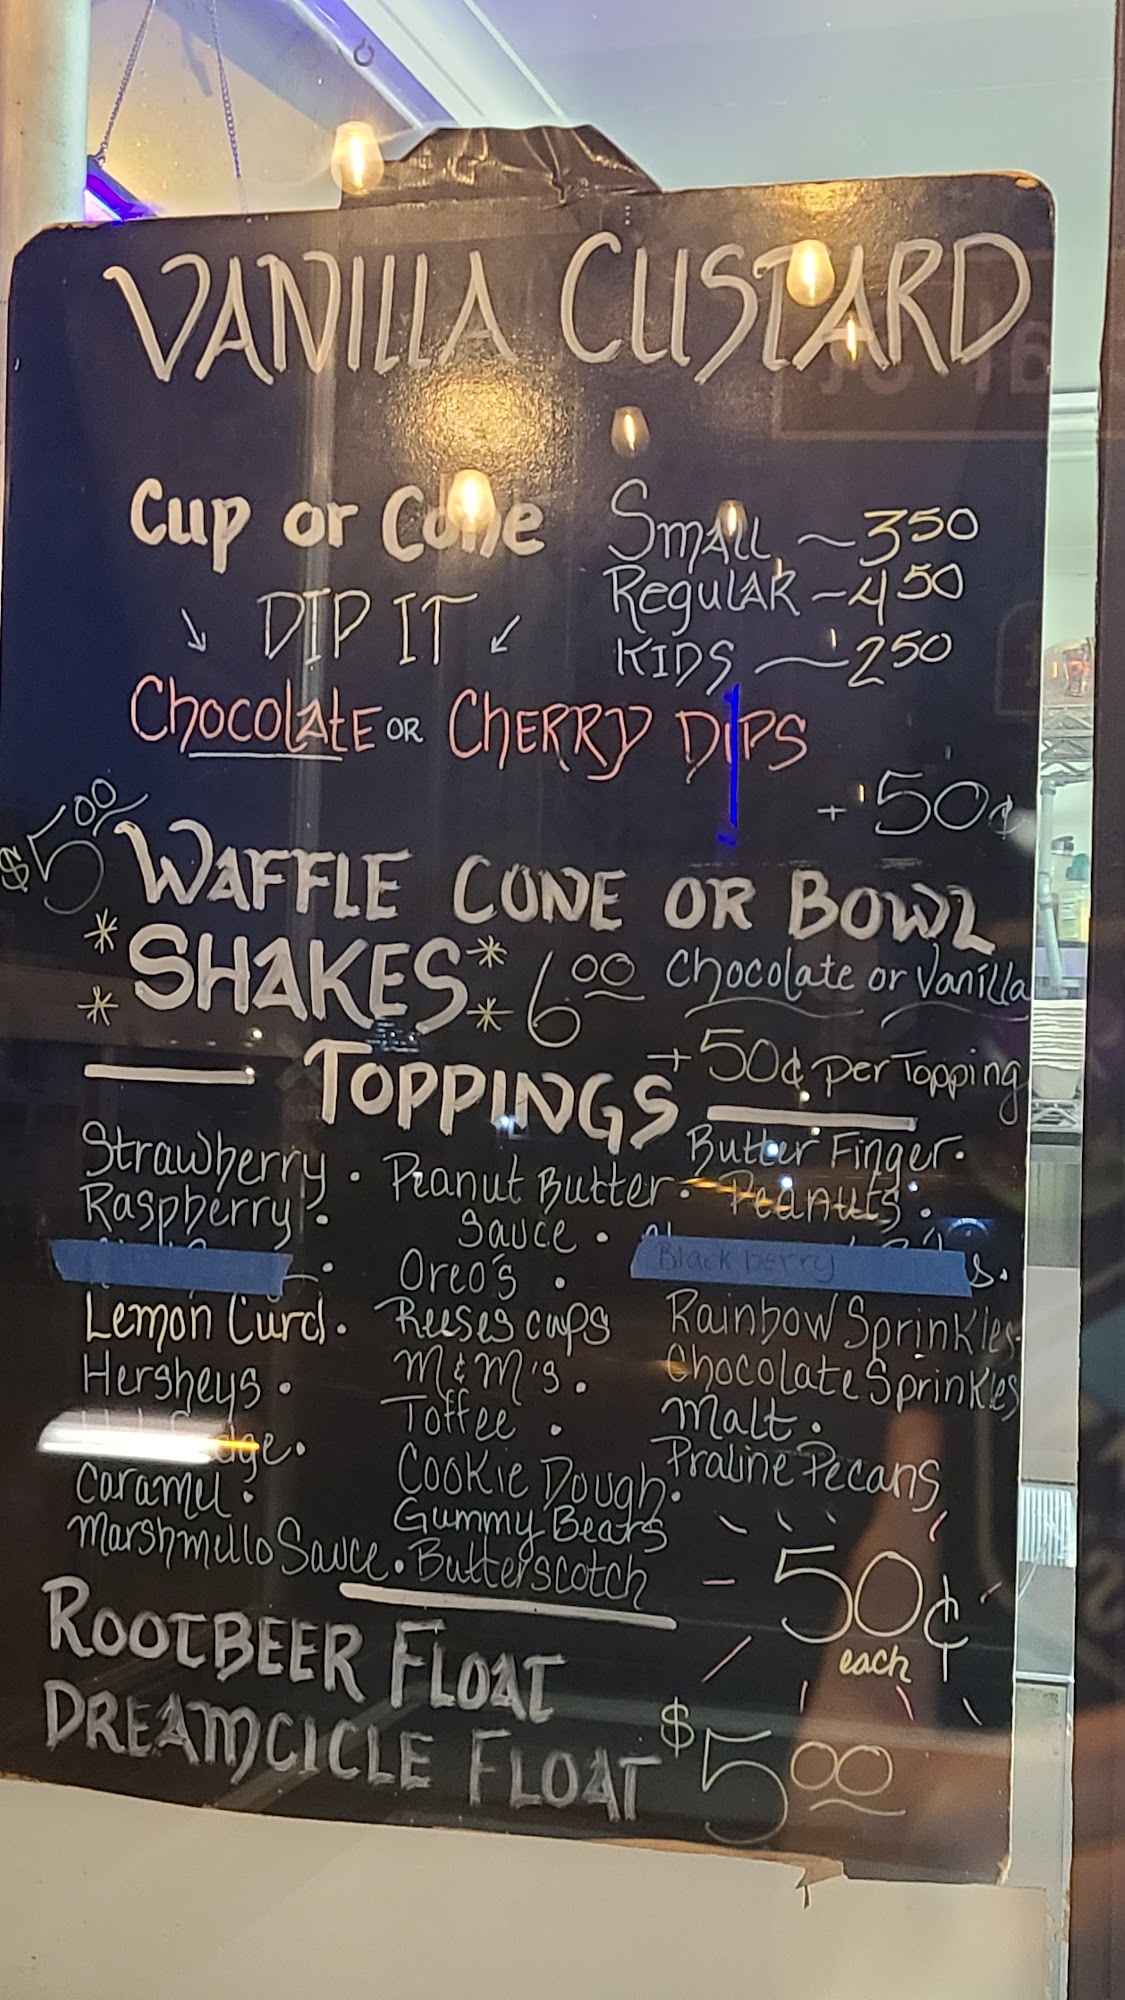 VANILLA CUSTARD
Cup or Cone
Small ~ 3 50
Regular - 4 50
KIDS ~ 2 50
DIP IT
Chocolate or CHERRY DIPS
+ 50¢
$5 00
WAFFLE CONE OR BOWL
*SHAKES* 6 00 Chocolate or Vanilla
TOPPINGS + 50¢ per Topping
Strawberry •
Raspberry •
Lemon Curd •
Hersheys •
Caramel •
Marshmello Sauce •
Peanut Butter •
Sauce •
Oreo's •
Reeses cups
M&M's •
Toffee •
Cookie Dough •
Gummy Bears
Butterscotch
Butter Finger •
Peanuts •
Black berry
Rainbow Sprinkles
Chocolate Sprinkles
Malt •
Praline Pecans
50¢
each
ROOTBEER FLOAT
DREAMCICLE FLOAT $5 00